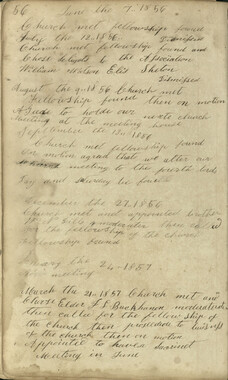 56 June the 7. 1856
Church met fellowship found
July the 12. 1856. Dismissed
Church met fellowship found and
Chose Delegats to the Association
William Elet Shelor
Dismised
August the 9. 1856 Church met
Fellowship found then on motion
Agreed to holde our next church
meeting at the meeting house
September the 13. 1856
Church met fellowship found
On motion agread that we alter our
meeting to the third lords
Day and Saturday before
December the 27. 1856
Church met and appointed Brother
moderator then called
for the fellowship of the church
fellowship found
the 24-1857
meeting
March the 21. 1857 Church met and
Chose Elder moderator
then called for the fellowship of
the church then proseeded to buisness
of the church then on motion
Appointed to have
Meeting in June